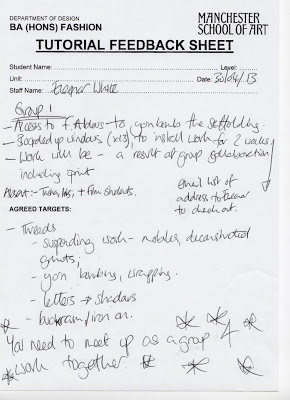 DEPARTMENT OF DESIGN
BA (HONS) FASHION
MANCHESTER
SCHOOL OF ART
TUTORIAL FEEDBACK SHEET
Student Name: Level:
Unit: Date: 30/04/13
Staff Name:
Group 1
- Access to to, the scaffolding.
- Boarded up windows (x13), to install work for 2 weeks
- Work will be - a result of group collaboration
including print
Absent:- + film students.
email list of
address to
to check out.
AGREED TARGETS:
- Threads
- suspending work - mobiles, deconstructed
garments,
- yarn bombing, wrapping.
- letters → shadows
- buckram/iron on.
You need to meet up as a group &
work together